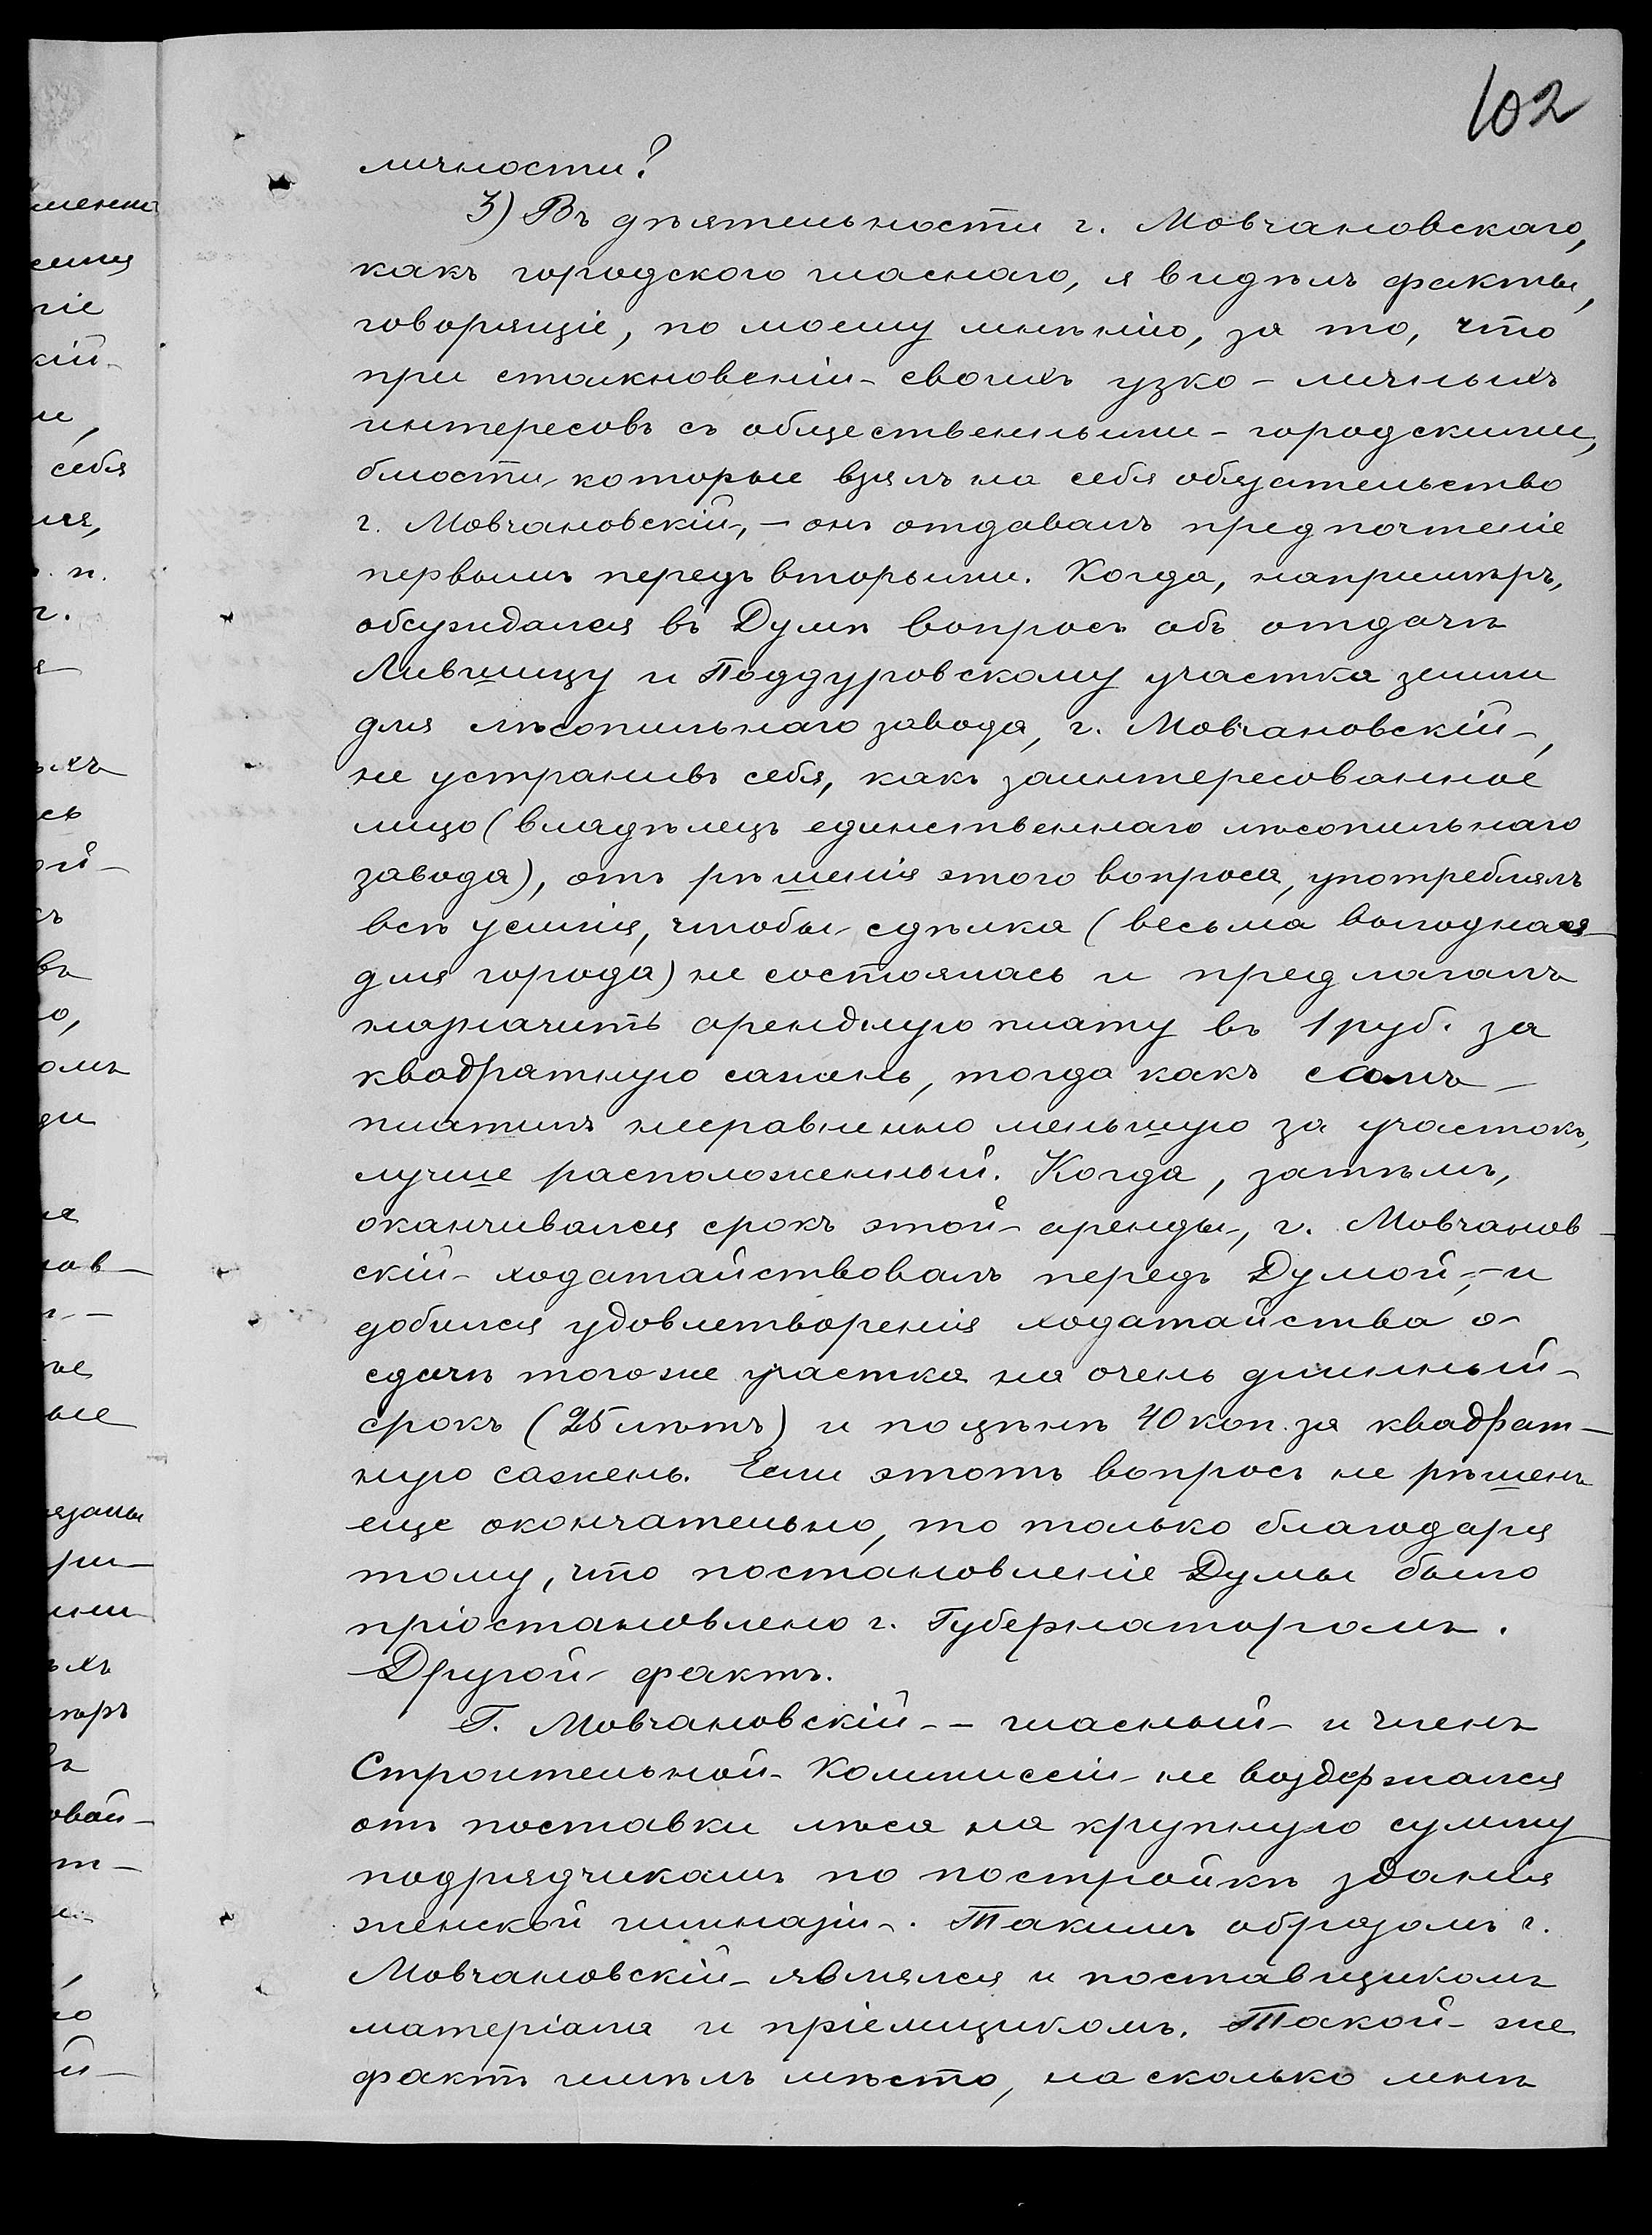 102
личности?
3) Въ дѣятельности г. Мовчановскаго,
какъ городского гласнаго, я видѣлъ факты,
говорящіе, по моему мнѣнію, за то, что
при столкновеніи своихъ узко-личныхъ
интересовъ съ общественными-городскими,
блюсти которые взялъ на себя обязательство
г. Мовчановскій, – онъ отдавалъ предпочтеніе
первымъ передъ вторыми. Когда, напримѣръ,
обсуждался въ Думѣ вопросъ объ отдачѣ
Лившицу и Поддуровскому участка земли
для лѣсопильнаго завода, г. Мовчановскій,
не устранивъ себя, какъ заинтересованное
лицо (владѣлецъ единственнаго лѣсопильнаго
завода), отъ рѣшенія этого вопроса, употреблялъ
всѣ усилія, чтобы сдѣлка (весьма выгодная
для города) не состоялась и предлагалъ
назначить арендную плату въ 1 руб. за
квадратную сажень, тогда какъ самъ
платилъ несравненно меньшую за участокъ,
лучше расположенный. Когда, затѣмъ,
оканчивался срокъ этой аренды, г. Мовчанов-
скій ходатайствовалъ передъ Думой, – и
добился удовлетворенія ходатайства о
сдачѣ того же участка на очень длинный
срокъ (25 лѣтъ) и по цѣнѣ 40 коп. за квадрат-
ную сажень. Если этотъ вопросъ не рѣшенъ
еще окончательно, то только благодаря
тому, что постановленіе Думы было
пріостановлено г. Губернаторомъ.
Другой фактъ.
Г. Мовчановскій – гласный и членъ
Строительной Коммиссіи не воздержался
отъ поставки лѣса на крупную сумму
подрядчикамъ по постройкѣ зданія
женской гимназіи. Такимъ образомъ г.
Мовчановскій являлся и поставщикомъ
матеріала и пріемщикомъ. Такой же
фактъ имѣлъ мѣсто, на сколько мнѣ